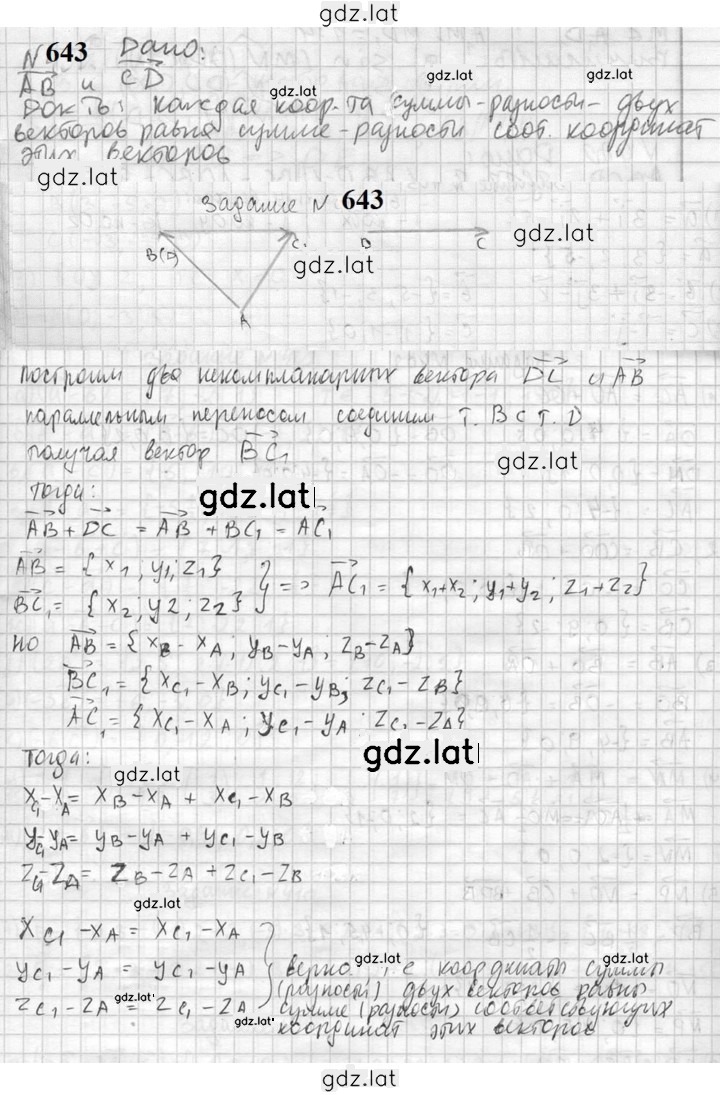 gdz.lat
N 643 Дано:
AB и CD
gdz.lat gdz.lat
Док-ть: каждая коор-та суммы-разности- двух
векторов равна сумме-разности соот. координат
этих векторов
gdz.lat
Задание N 643
B(D) C₁ D C gdz.lat
gdz.lat
A
построим два некомпланарных вектора DC и AB
параллельным переносом соединим т. B с т. D
получая вектор BC₁
gdz.lat
Тогда:
gdz.lat
AB + DC = AB + BC₁ = AC₁
AB = {x₁; y₁; z₁}
BC₁ = {x₂; y₂; z₂} } => AC₁ = {x₁+x₂; y₁+y₂; z₁+z₂}
но AB = {x_B - x_A; y_B - y_A; z_B - z_A}
BC₁ = {x_C₁ - x_B; y_C₁ - y_B; z_C₁ - z_B}
AC₁ = {x_C₁ - x_A; y_C₁ - y_A; z_C₁ - z_A}
Тогда:
gdz.lat
gdz.lat
x_C₁ - x_A = x_B - x_A + x_C₁ - x_B
y_C₁ - y_A = y_B - y_A + y_C₁ - y_B
z_C₁ - z_A = z_B - z_A + z_C₁ - z_B
gdz.lat
x_C₁ - x_A = x_C₁ - x_A
y_C₁ - y_A = y_C₁ - y_A
z_C₁ - z_A = z_C₁ - z_A
gdz.lat gdz.lat
верно т.е координаты суммы
(разности) двух векторов равны
gdz.lat gdz.lat
сумме (разности) соответствующих
gdz.lat
координат этих векторов
gdz.lat